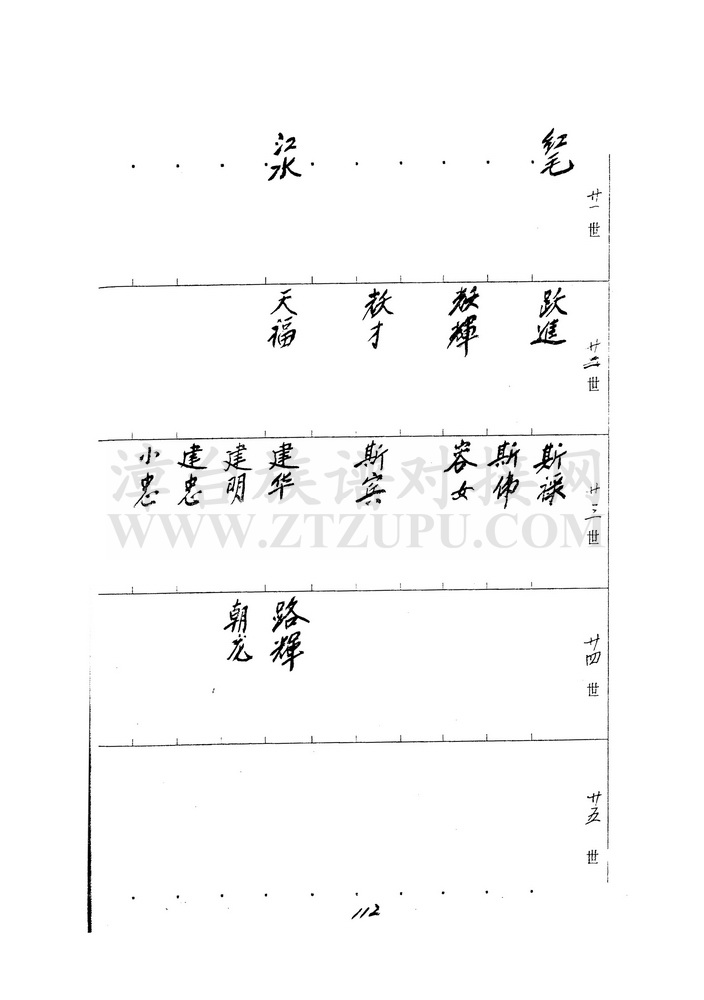 廿一世
红毛
江水
廿二世
跃進
教輝
教才
天福
廿三世
斯禄
斯伟
容女
斯宾
建华
建明
建忠
小忠
廿四世
路輝
朝龙
廿五世
112
漳台族谱对接网
WWW.ZTZUPU.COM